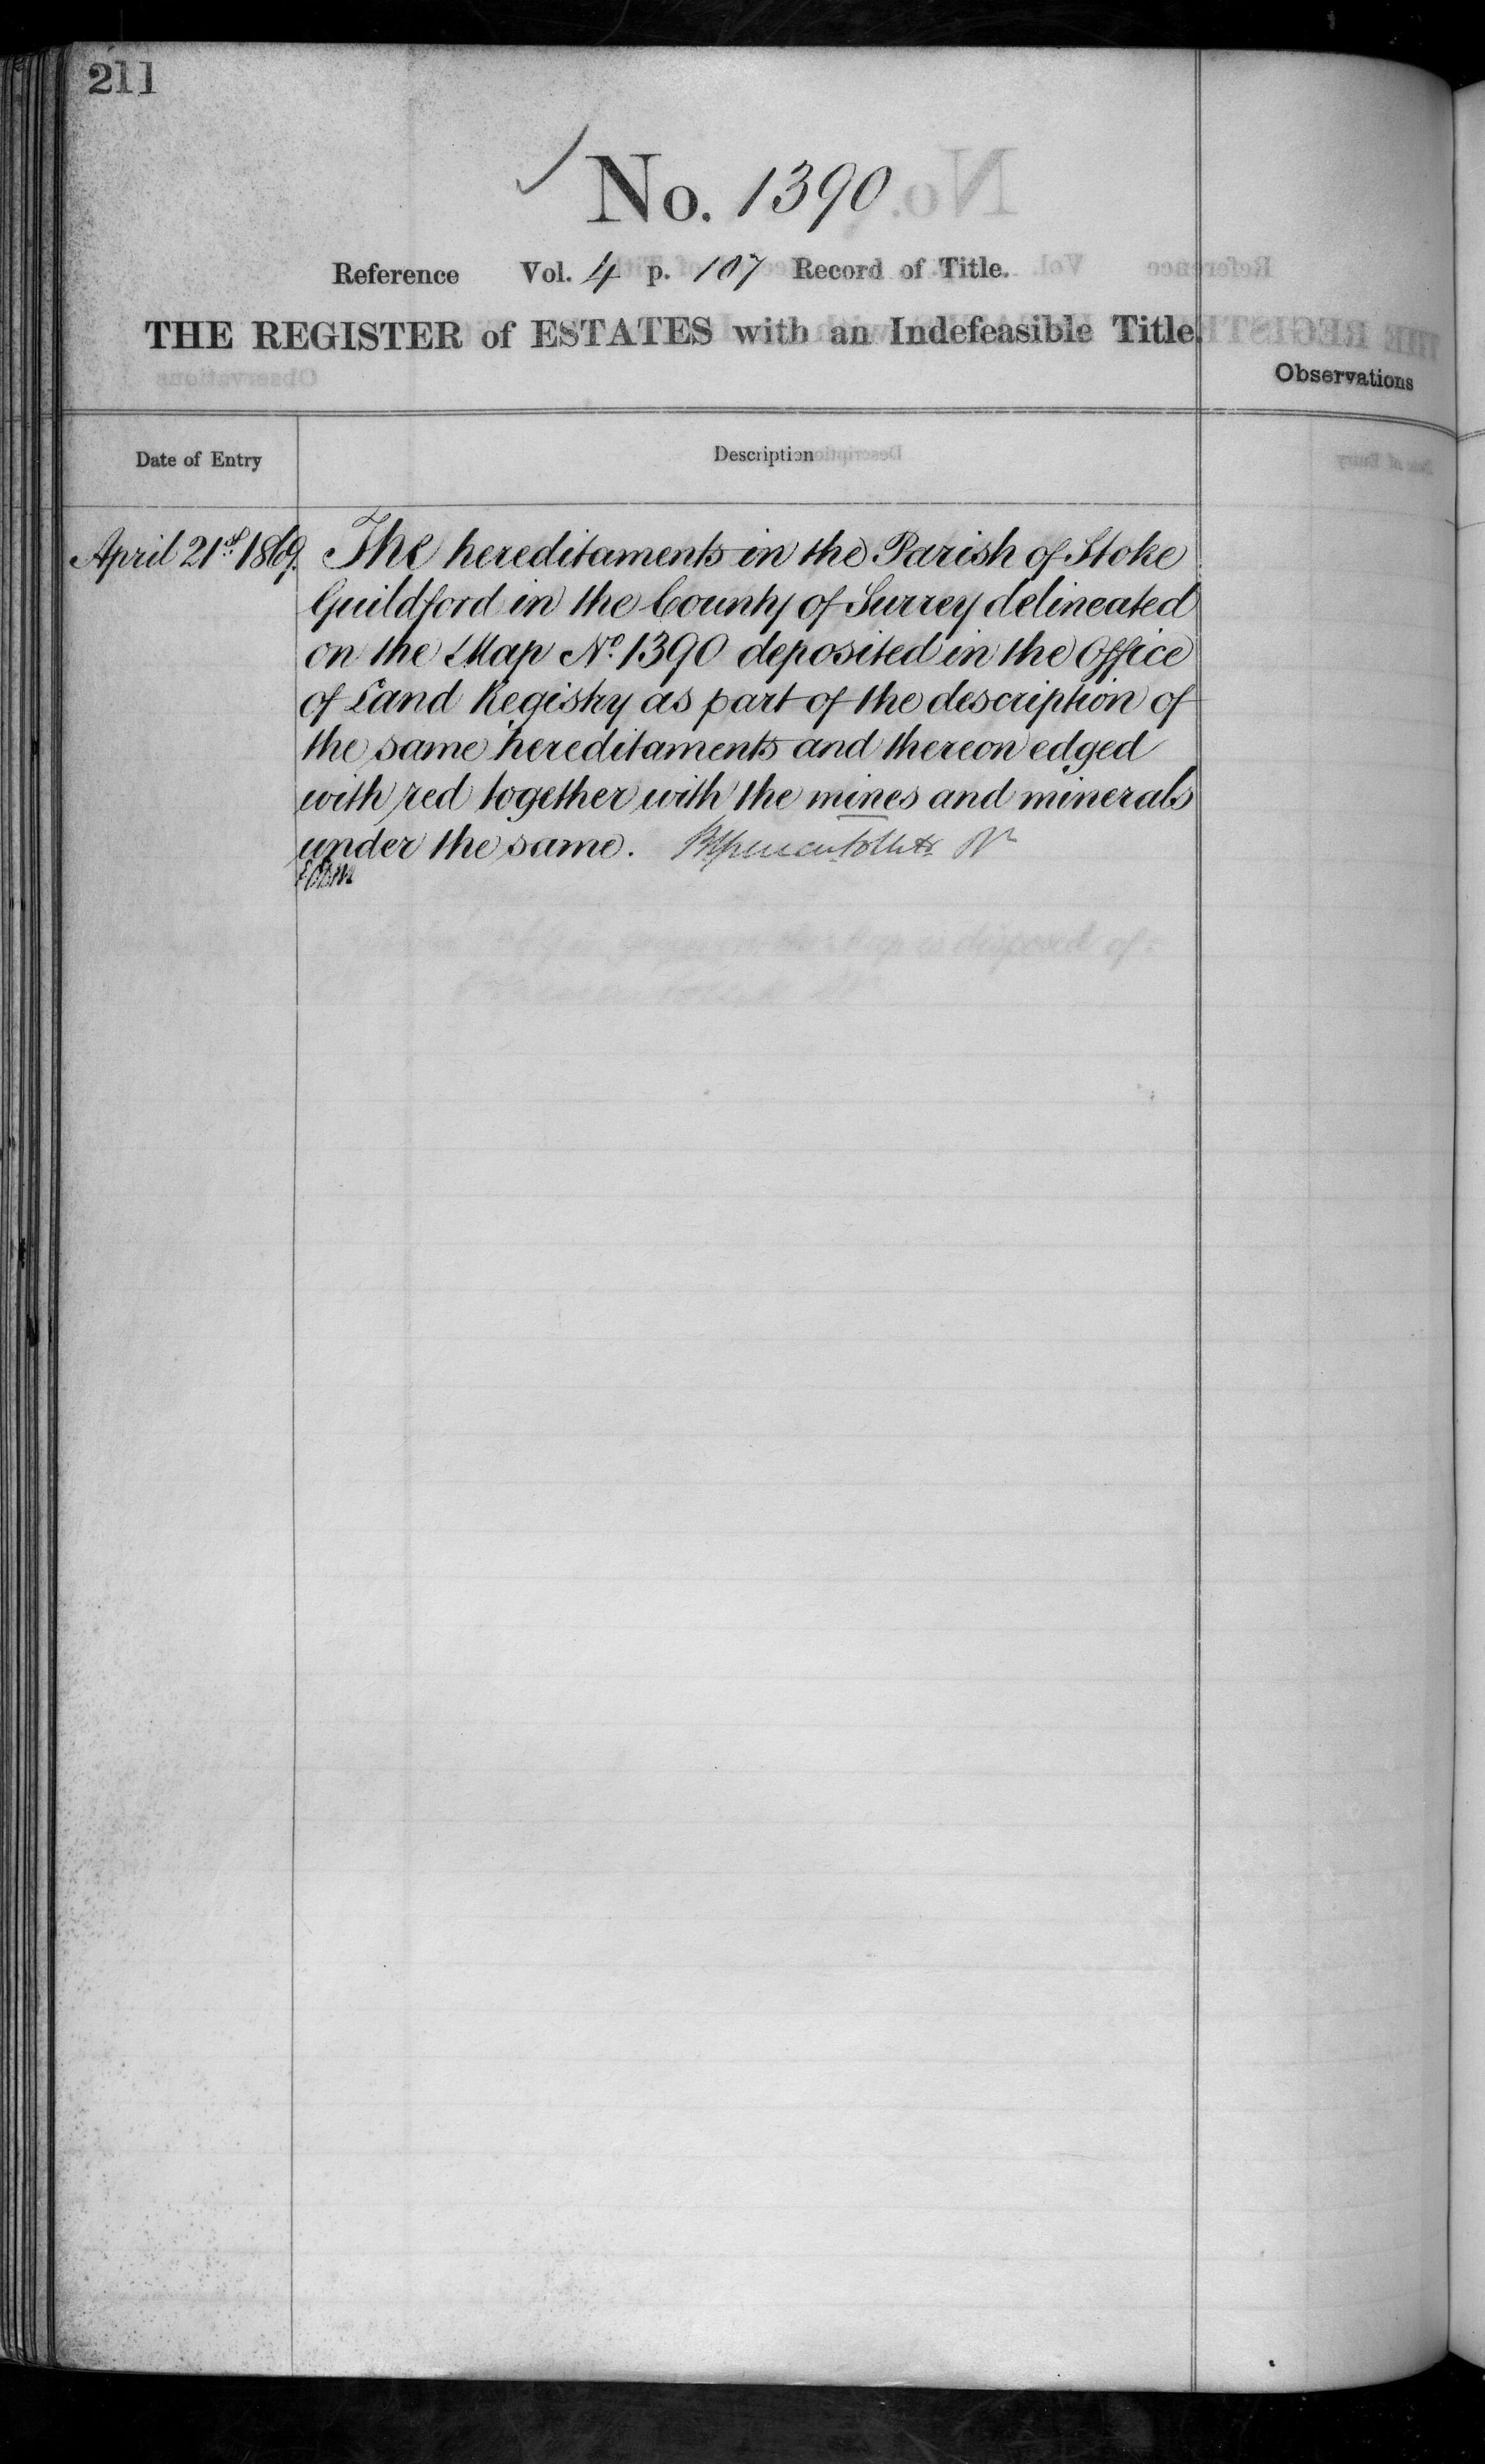 211
No. 1390
Reference Vol. 4 p. 107 Record of Title.
THE REGISTER of ESTATES with an Indefeasible Title.
Observations
Date of Entry
Description
April 21st 1869. The hereditaments in the Parish of Stoke
Guildford in the County of Surrey delineated
on the Map No. 1390 deposited in the Office
of Land Registry as part of the description of
the same hereditaments and thereon edged
with red together with the mines and minerals
under the same.